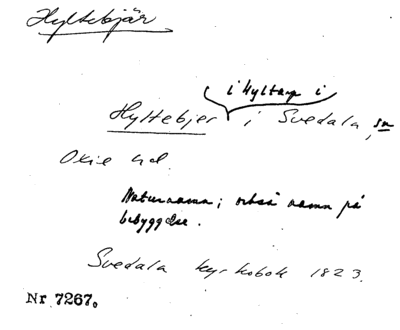 Hyltebjär
i Hyltarp i
Hyltebjer i Svedala, sn
Oxie hd.
Naturnamn; också namn på
bebyggelse.
Svedala kyrkobok 1823.
Nr 7267.